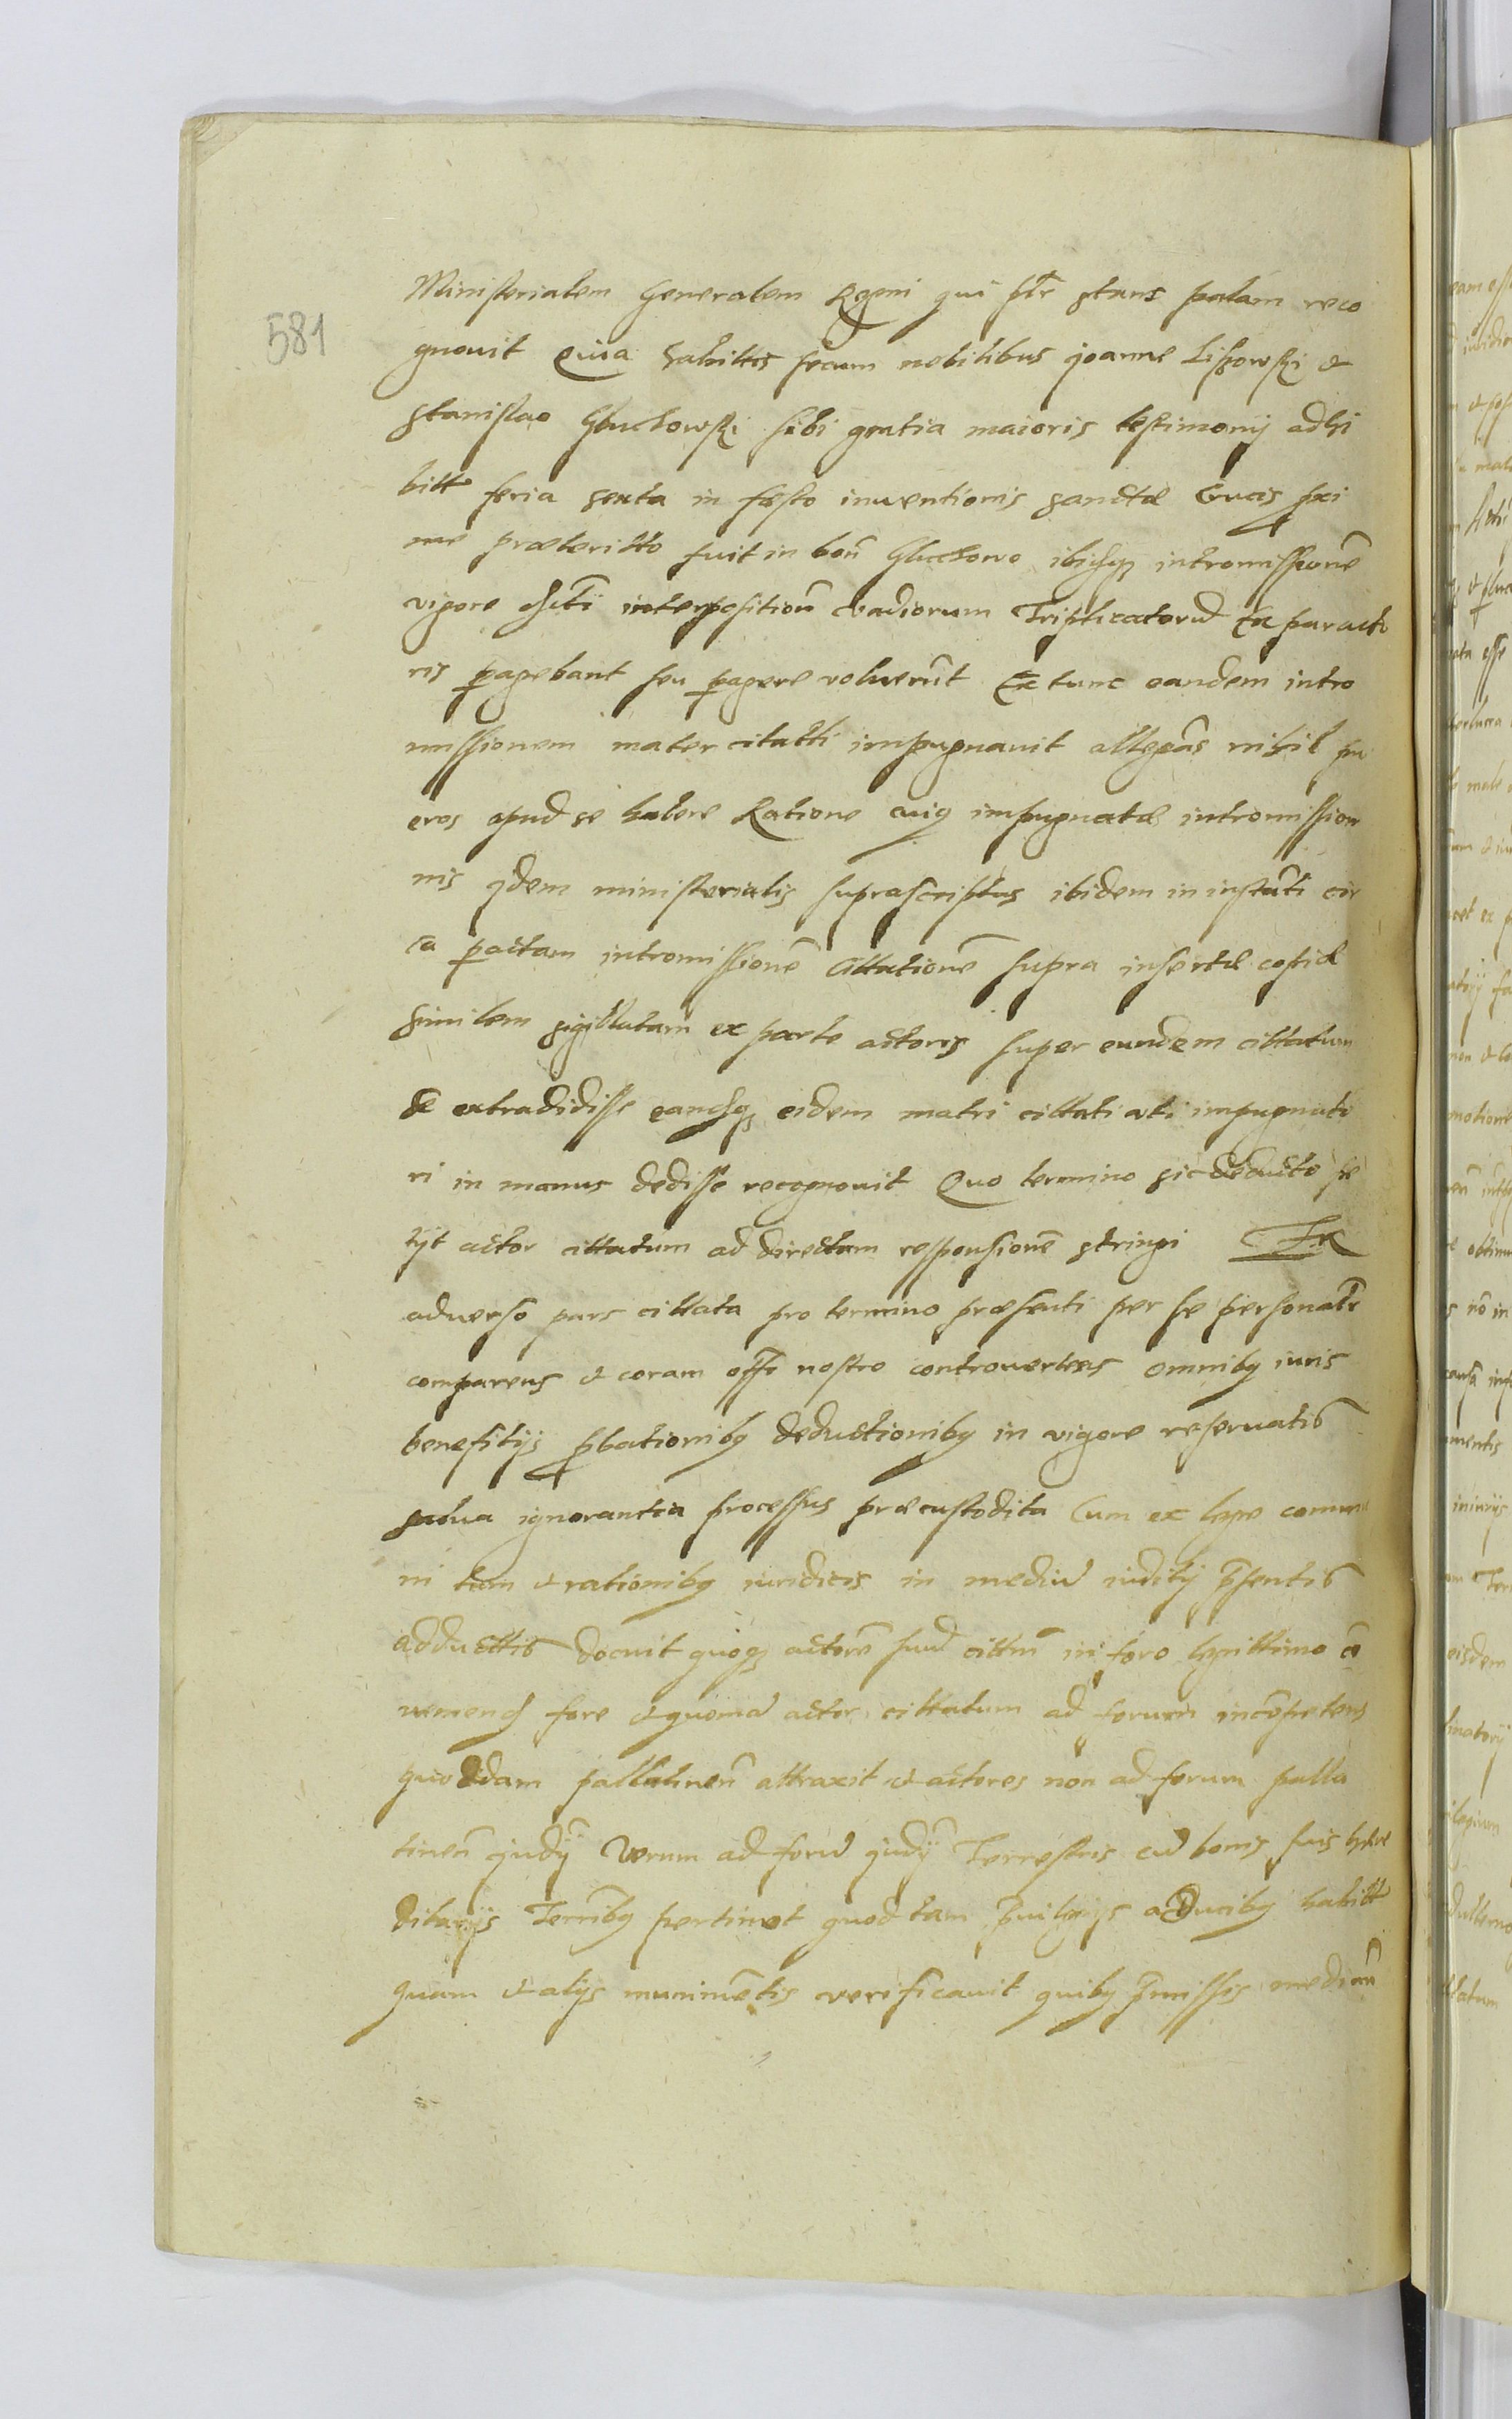 581
Ministerialem Generalem Regni qui pntr stans palam reco
gnovit Quia habittis secum nobilibus Joanne Lissowski &
Stanislao Gluchowski sibi gratia maioris testimonij adhi
bitto feria sexta in festo inventionis sanctæ Crucis pxi
me præteritto fuit in bon Gluchowo ibidqz intromissione
vigore interposition vadiorum Triplicatorū Ex par acto
ris pagebant seu pagere voluerūt Ex tunc eandem intro
missionem mater citatti impugnavit allegās nihil pu
eros apud se habere Ratione cuiq impugnatæ intromission
nis qdem ministerialis suprascriptus ibidem in instāti cir
ca pactam intromissionē Cittationē supra insertæ copiæ
similem sigillatam ex parte actoris super eundem cittatum
se extradidisse eandqz eidem matri cittati uti impugnato
ri in manus dedisse recognovit Quo termino sic deducto pe
tijt actor cittatum ad directam responsionē stringi Ex
adverso pars cittata pro termino præsenti per se personalr
comparens & coram offo nostro controvertens omnibq iuris
benefitijs pbationibq deductionibq in vigore reservatis
salva ignorantia processus præcustodita Cum ex lege commu
ni tum & rationibq iuridicis in mediū iuditij psentis
adducttis docuit quoqz actorē suū cittm in foro legittimo cō
veniend fore & quoniā actor cittatum ad forum incōpetens
quoddam pallatinen attraxit & actores non ad forum palla
tinen Judy Verum ad forū Judy Terrestris cū bonis suis hære
ditarijs Terribq pertinet quod tam pvilegijs a Ducibq habitt
quam & alijs munimētis verificavit quibq pmissis median